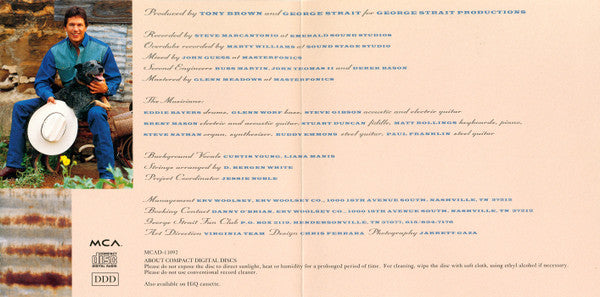 Produced by TONY BROWN and GEORGE STRAIT for GEORGE STRAIT PRODUCTIONS
Recorded by STEVE MARCANTONIO at EMERALD SOUND STUDIOS
Overdubs recorded by MARTY WILLIAMS at SOUND STAGE STUDIO
Mixed by JOHN GUESS at MASTERFONICS
Second Engineers RUSS MARTIN, JOHN THOMAS II and DEREK BASON
Mastered by GLENN MEADOWS at MASTERFONICS
The Musicians:
EDDIE BAYERS drums, GLENN WORF bass, STEVE GIBSON acoustic and electric guitar
BRENT MASON electric and acoustic guitar, STUART DUNCAN fiddle, MATT ROLLINGS keyboards, piano,
STEVE NATHAN organ, synthesizer, BUDDY EMMONS steel guitar, PAUL FRANKLIN steel guitar
Background Vocals CURTIS YOUNG, LIANA MANIS
Strings arranged by D. BERGEN WHITE
Project Coordinator JESSIE NOBLE
Management ERV WOOLSEY, ERV WOOLSEY CO., 1000 18TH AVENUE SOUTH, NASHVILLE, TN 37212
Booking Contact DANNY O'BRIAN, ERV WOOLSEY CO., 1000 18TH AVENUE SOUTH, NASHVILLE, TN 37212
George Strait Fan Club P.O. BOX 2119, HENDERSONVILLE, TN 37077, 615/824-7176
Art Direction VIRGINIA TEAM Design CHRIS FERRARA Photography JARRETT GAZA
MCA
MCAD-11092
ABOUT COMPACT DIGITAL DISCS
Please do not expose the disc to direct sunlight, heat or humidity for a prolonged period of time. For cleaning, wipe the disc with soft cloth, using ethyl alcohol if necessary.
Please do not use conventional record cleaner.
Also available on HiQ cassette.
COMPACT
disc
DIGITAL AUDIO
DDD